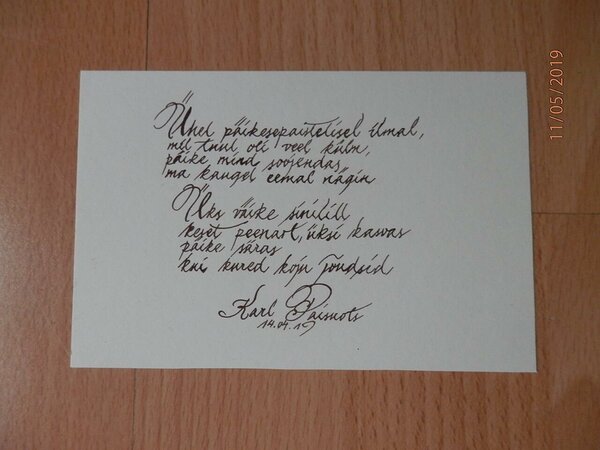 Ühel päikesepaistelisel ilmal,
mil tuul oli veel külm,
päike mind soojendas,
ma kaugel eemal nägin
Üks väike sinilill
keset peenart, üksi kasvas
päike säras
kui kured koju jõudsid
Karl Paisnots
14.04.19
11/05/2019